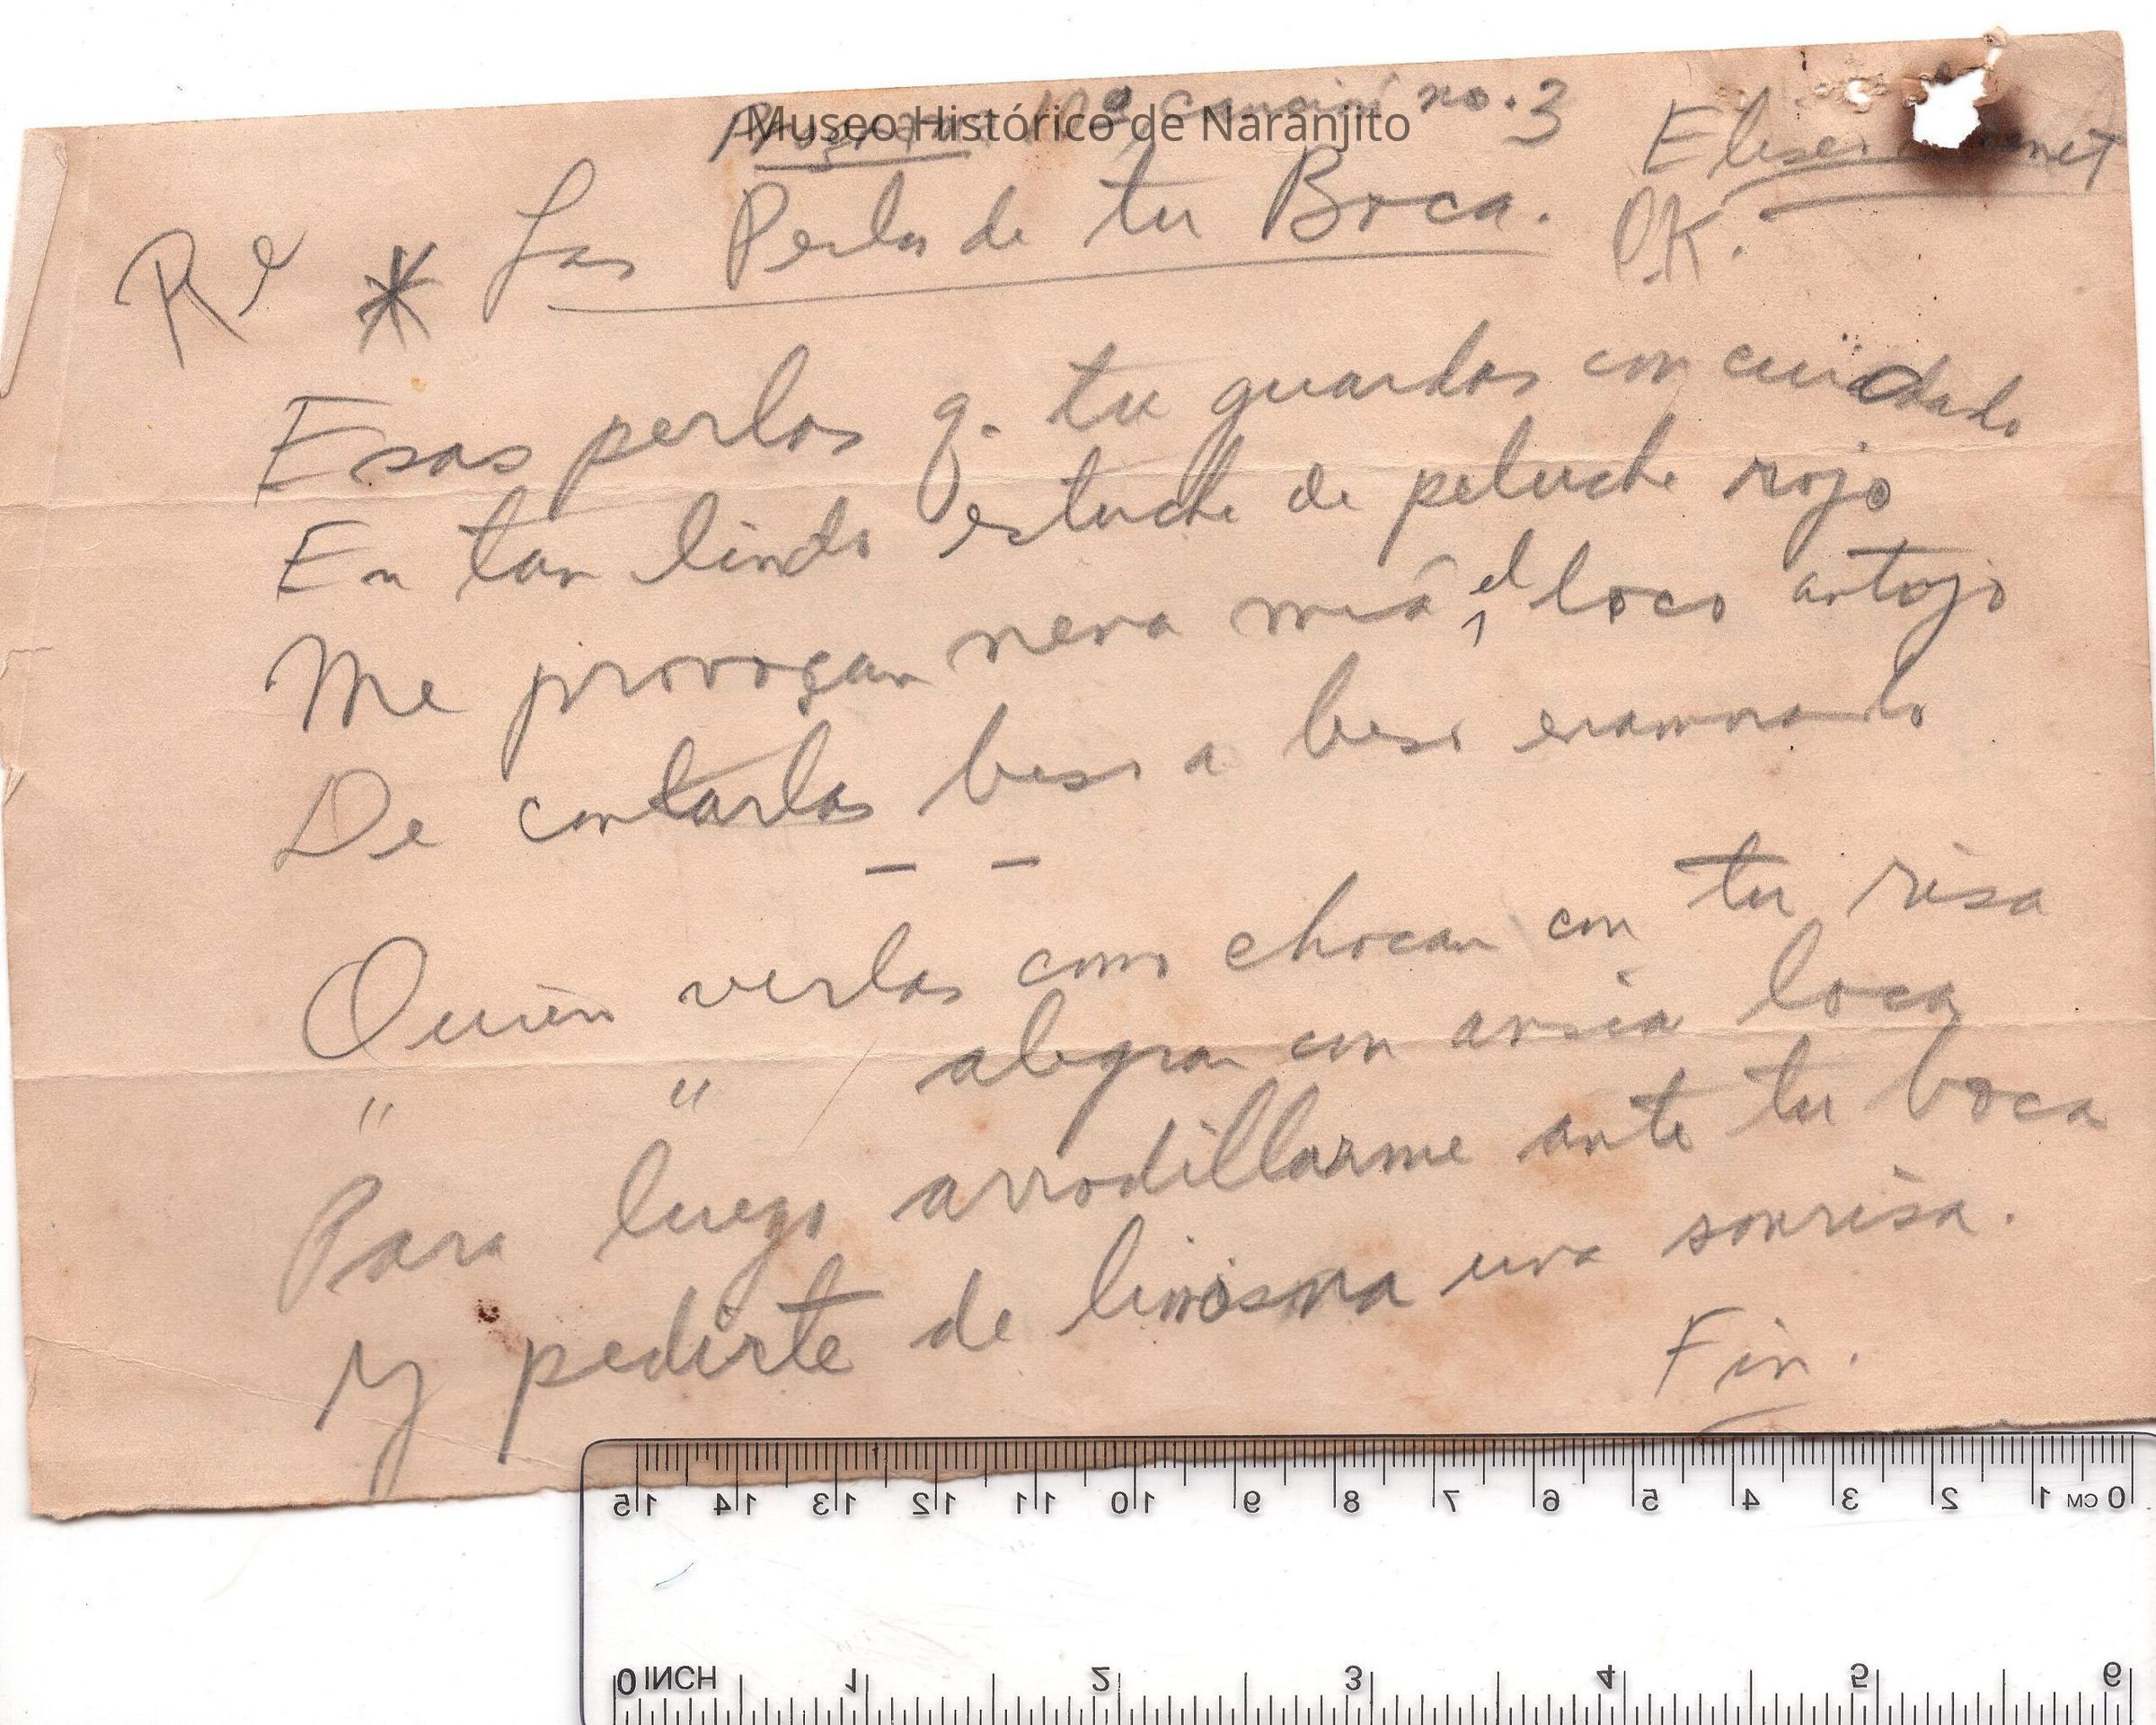 Museo Histórico de Naranjito
no. 3
Elise net
Re * Las Perlas de tu Boca. OK.
Esas perlas q. tu guardas con cuidado
En tan lindo estuche de peluche rojo
Me provocan nena mía el loco antojo
De contarlas beso a beso enamorado
— —
Quién verlas como chocan con tu risa
" " alegran con ansia loca
Para luego arrodillarme ante tu boca
Y pedirte de limosna una sonrisa.
Fin.
15 14 13 12 11 10 9 8 7 6 5 4 3 2 1 CM 0
0 INCH 1 2 3 4 5 6